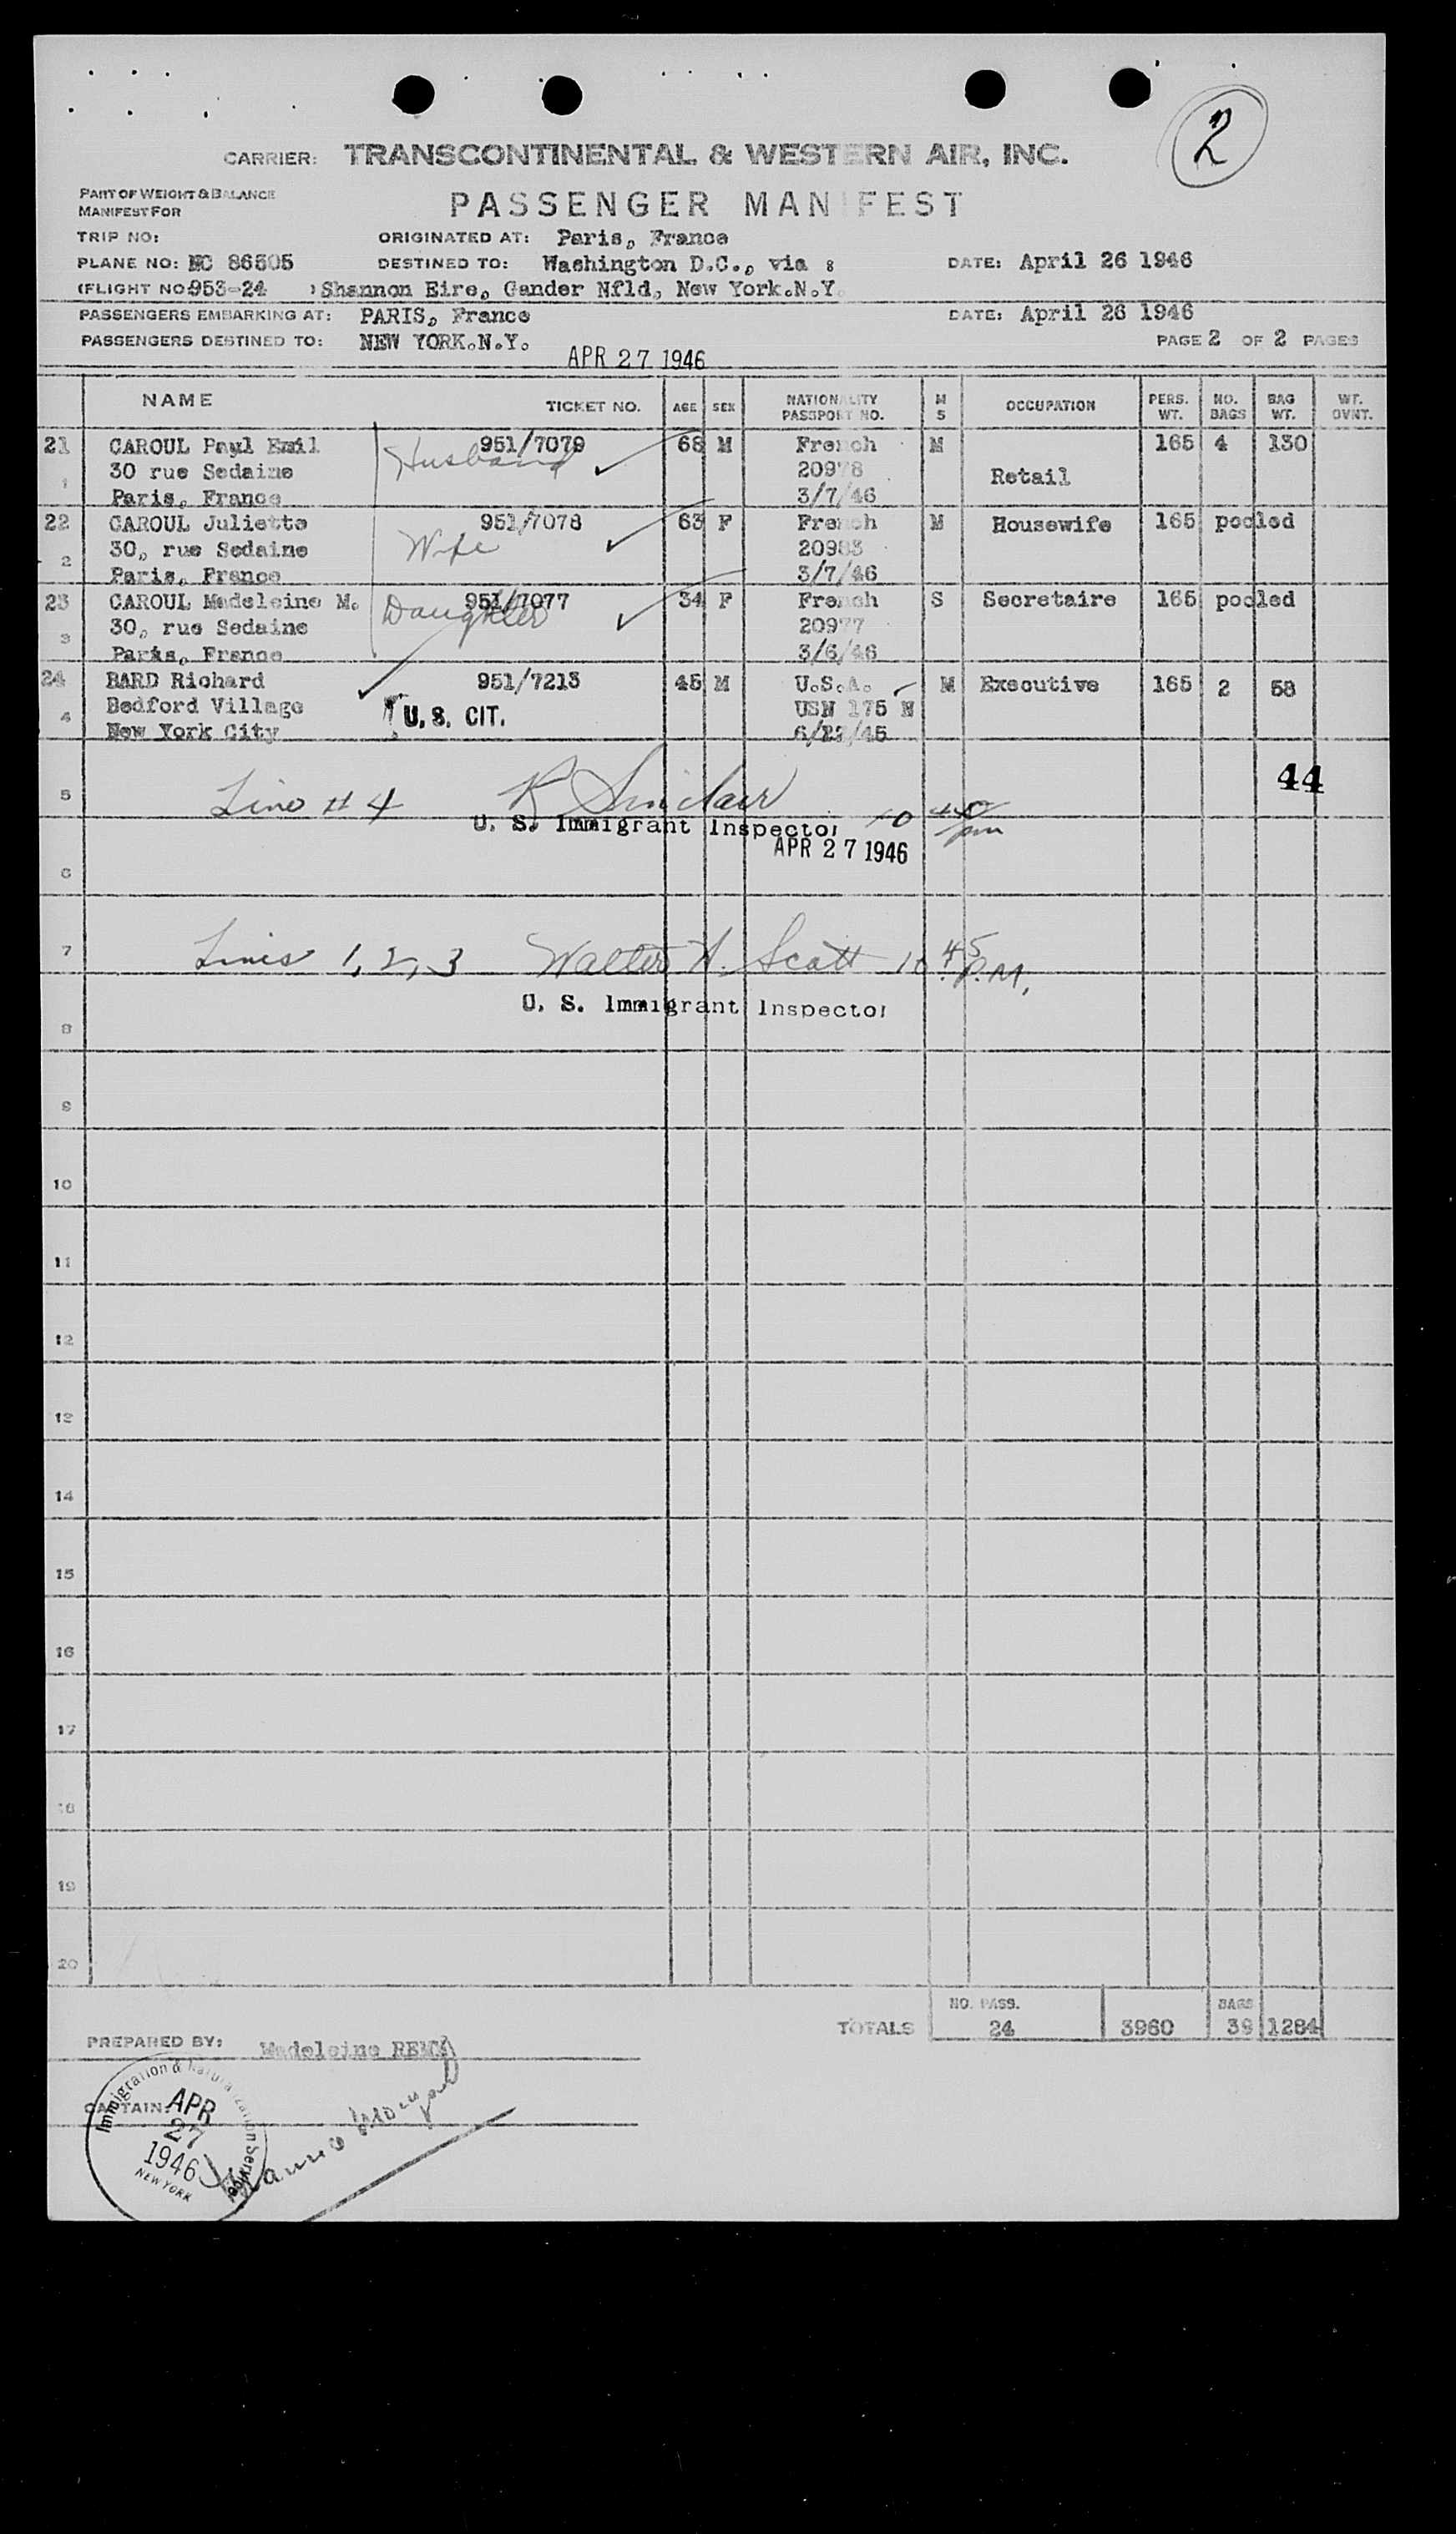 2
CARRIER: TRANSCONTINENTAL & WESTERN AIR, INC.
PART OF WEIGHT & BALANCE
MANIFEST FOR
PASSENGER MANIFEST
TRIP NO: ORIGINATED AT: Paris, France
PLANE NO: NC 86505 DESTINED TO: Washington D.C., via : DATE: April 26 1946
(FLIGHT NO 953-24 ) Shannon Eire, Gander Nfld, New York.N.Y.
PASSENGERS EMBARKING AT: PARIS, France DATE: April 26 1946
PASSENGERS DESTINED TO: NEW YORK.N.Y. PAGE 2 OF 2 PAGES
APR 27 1946
NAME TICKET NO. AGE SEX NATIONALITY PASSPORT NO. M S OCCUPATION PERS. WT. NO. BAGS BAG WT. WT. OVNT.
21 CAROUL Payl Emil Husband 951/7079 68 M French M 165 4 130
30 rue Sedaine 20978 Retail
1 Paris, France 3/7/46
22 CAROUL Juliette 951/7078 63 F French M Housewife 165 pooled
2 30, rue Sedaine Wife 20983
Paris, France 3/7/46
23 CAROUL Madeleine M. Daughter 951/7077 34 F French S Secretaire 165 pooled
3 30, rue Sedaine 20977
Paris, France 3/6/46
24 BARD Richard 951/7213 45 M U.S.A. M Executive 165 2 58
4 Bedford Village U. S. CIT. USN 175 N
New York City 6/22/45
44
5 Line # 4 R Sinclair 10 40 pm
U. S. Immigrant Inspector
APR 27 1946
6
7 Lines 1, 2, 3 Walter H. Scott 10 45 P.M.
U. S. Immigrant Inspector
8
9
10
11
12
13
14
15
16
17
18
19
20
TOTALS NO. PASS. 24 3960 BAGS 39 1284
PREPARED BY: Madeleine
CAPTAIN:
Immigration & Naturalization Service
APR
27
1946
NEW YORK